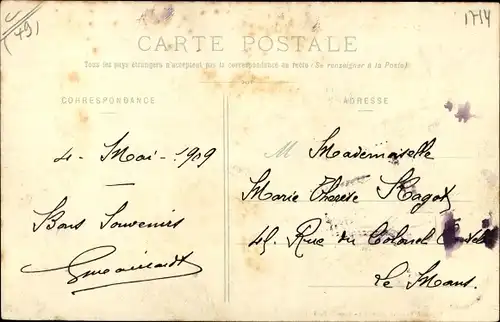 (79)
1714
CARTE POSTALE
Tous les pays étrangers n'acceptent pas la correspondance au recto (Se renseigner à la Poste)
CORRESPONDANCE
ADRESSE
4 - Mai - 1909
Bons Souvenirs
M Mademoiselle
Marie Therese
45, Rue du Colonel
Le Mans.